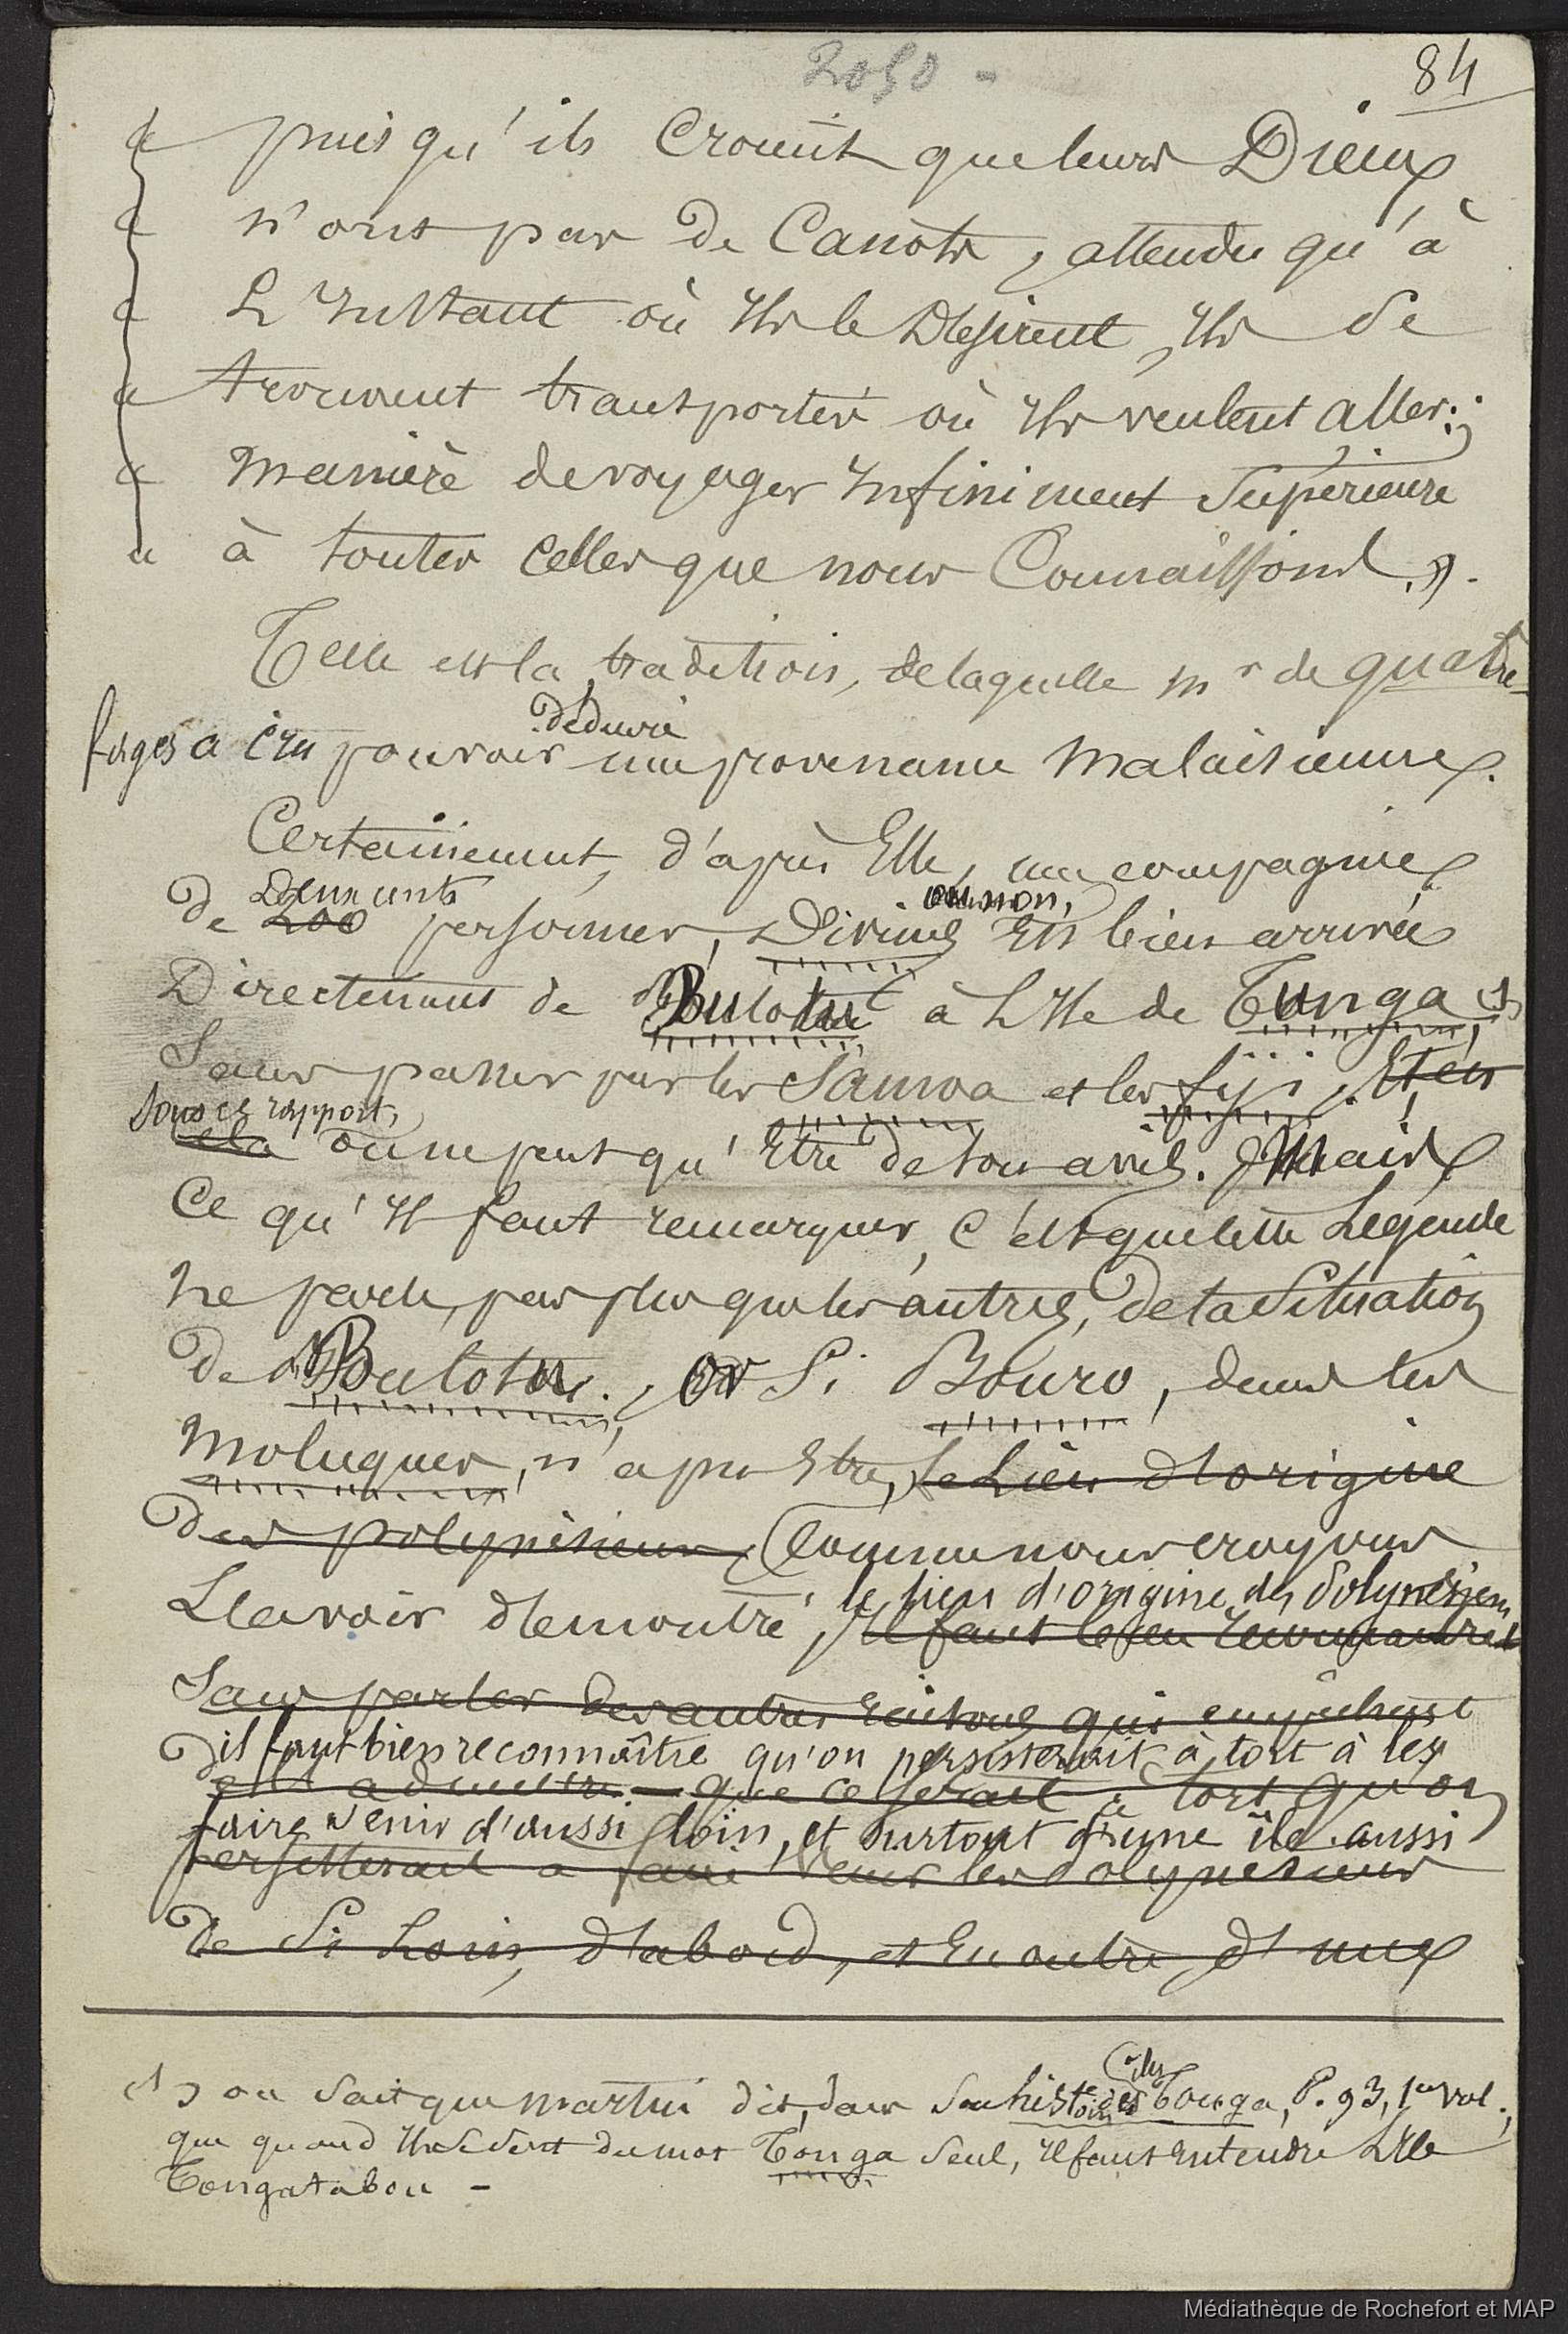 2050 -
84
« puisqu'ils croient que leurs Dieux
« n'ont pas de Canots, attendu qu'à
« L'Instant où Ils le Désirent, Ils se
« trouvent transportés où Ils veulent aller;
« manière de voyager Infiniment Supérieure
« à toutes celles que nous Connaissons ».
Telle est la tradition, de laquelle mr de quatre-
déduire
fages a cru pouvoir une provenance malaisienne.
Certainement, d'après Elle, une compagnie
Deux cents
ou non,
de 200 personnes, Divines Est bien arrivée
Directement de Bulotu à L'Ile de Tunga (1)
Sans passer par les Samoa et les fiji. Et en
sous ce rapport,
cela on ne peut qu'Etre de son avis. Mais
Ce qu'Il faut remarquer, c'est que cette Légende
ne parle, pas plus que les autres, de la Situation
de Boulotou. or Si Bouro, dans les
moluques, n'a pu Etre, le Lieu d'origine
des polynésiens, Comme nous croyons
le lieu d'origine des Polynésiens
L'avoir démontré, Il faut bien reconnaitre
Sans parler des autres raisons qui empêchent
il faut bien reconnaître qu'on persisterait à tort à les
de l'admettre - que ce serait à tort qu'on
faire venir d'aussi loin, et surtout d'une île aussi
persisterait à faire venir les Polynésiens
de Si Loin, d'abord, et En outre d'une
(1) on sait que martin dit, dans son histoire des Iles Tonga, P. 93, 1er vol.,
que quand Il se sert du mot Tonga seul, Il faut Entendre L'Ile
Tongatabou -
Médiathèque de Rochefort et MAP